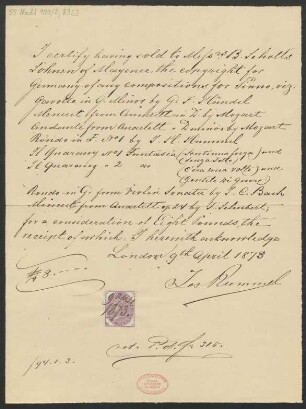 I certify having sold to Messrs B. Schott's
Söhnen of Mayence the copyright for
Germany of my compositions for Piano, viz.
Gavotte in G. Minor by G. F. Händel
Minuet from Quintett in D. by Mozart
Andante from Quartett - D minor by Mozart
Rondo in F. No 1 by J. N. Hummel
Il Guarany No 1 Fantasia (Sentimentale) and
Il Guarany - 2 do
Rondo in G. from Violin Sonata by J. C. Bach
Minuet from Quartett op 29 by F. Schubert,
for a consideration of Eight Pounds, the
receipt of which I herewith acknowledge
London 9th April 1873
£ 8. ----
Jos Rummel
1873